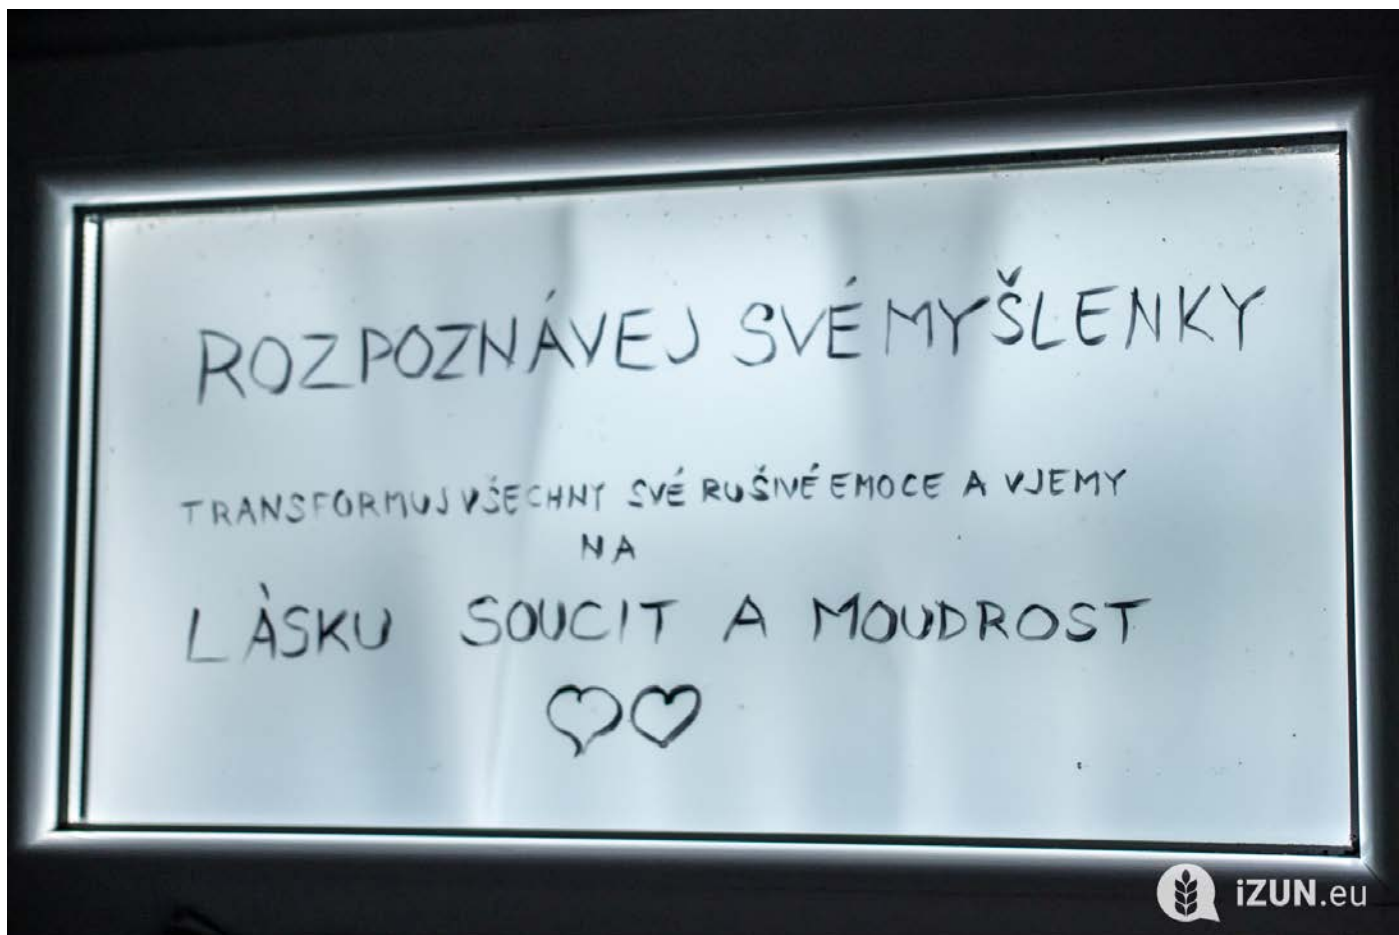 ROZPOZNÁVEJ SVÉ MYŠLENKY
TRANSFORMUJ VŠECHNY SVÉ RUŠIVÉ EMOCE A VJEMY
NA
LÁSKU SOUCIT A MOUDROST
iZUN.eu